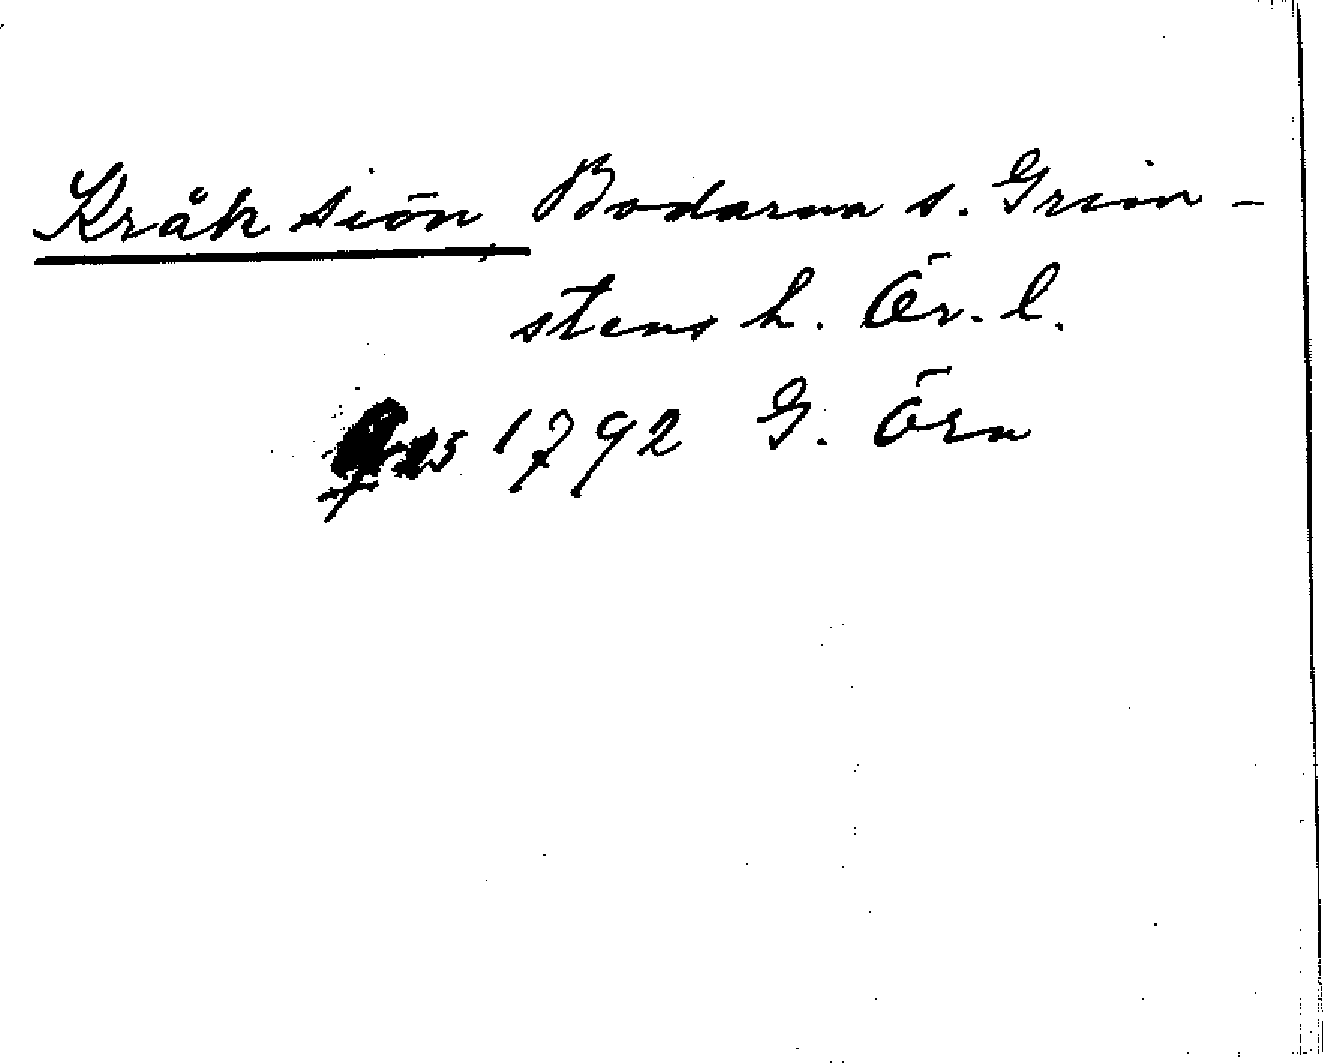 Kråk siön, Bodarna s. Grim-
stens h. Ör. l.
1792 G. Örn